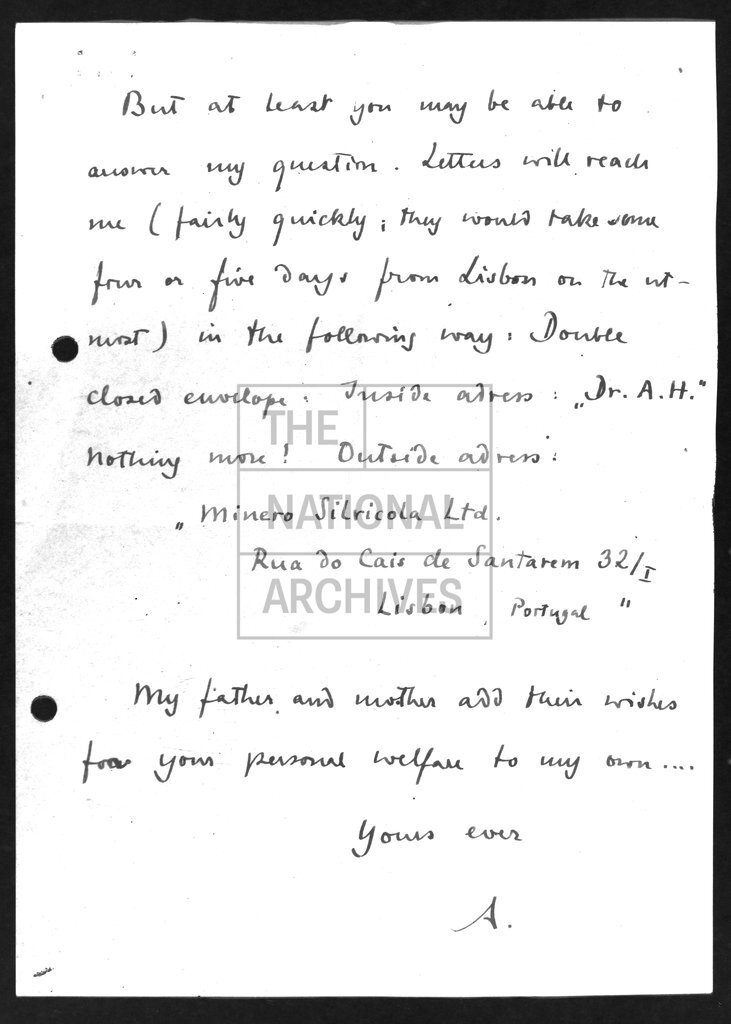 But at least you may be able to
answer my question. Letters will reach
me (fairly quickly; they would take some
four or five days from Lisbon on the ut-
most) in the following way: Double
closed envelope. Inside adress: „Dr. A.H."
Nothing more! Outside adress:
„Minero Silricola Ltd.
Rua do Cais de Santarem 32/I
Lisbon, Portugal"
My father and mother add their wishes
for your personal welfare to my own....
Yours ever
A.
THE
NATIONAL
ARCHIVES